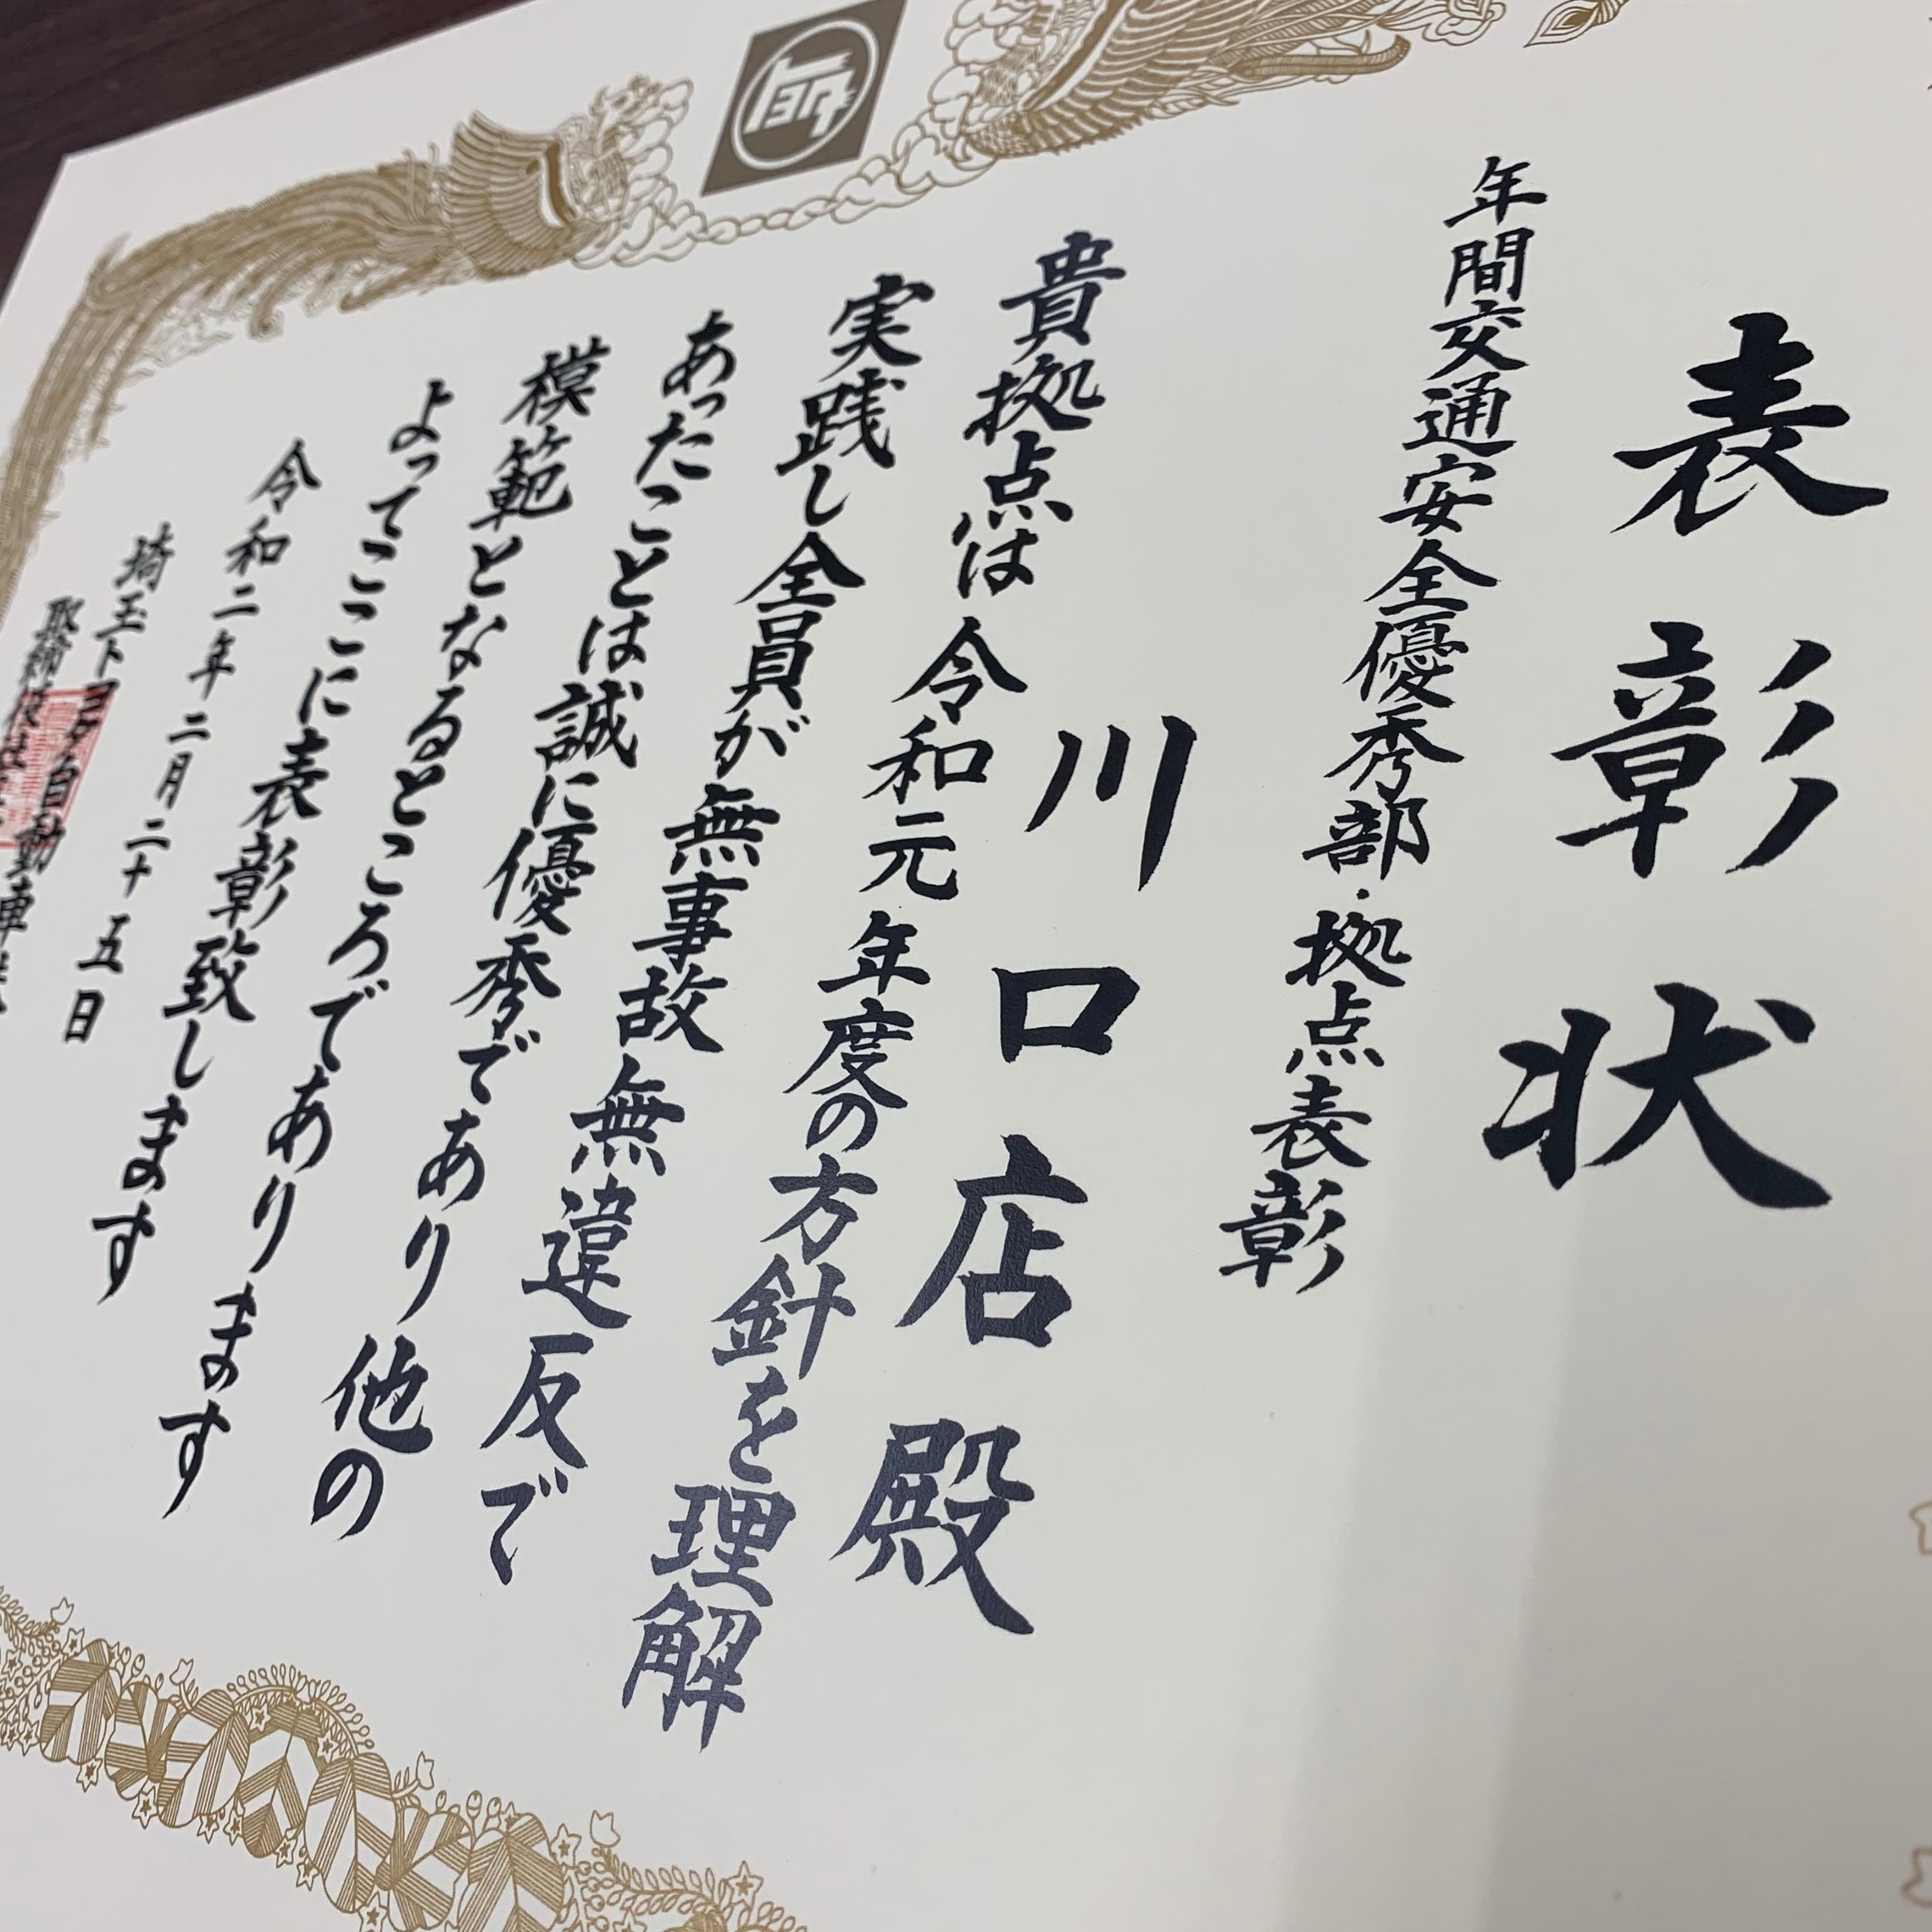 表彰状
年間交通安全優秀部・拠点表彰
川口店殿
貴拠点は令和元年度の方針を理解
実践し全員が無事故無違反で
あったことは誠に優秀であり他の
模範となるところであります
よってここに表彰致します
令和二年二月二十五日
埼玉トヨタ自動車
取締役社